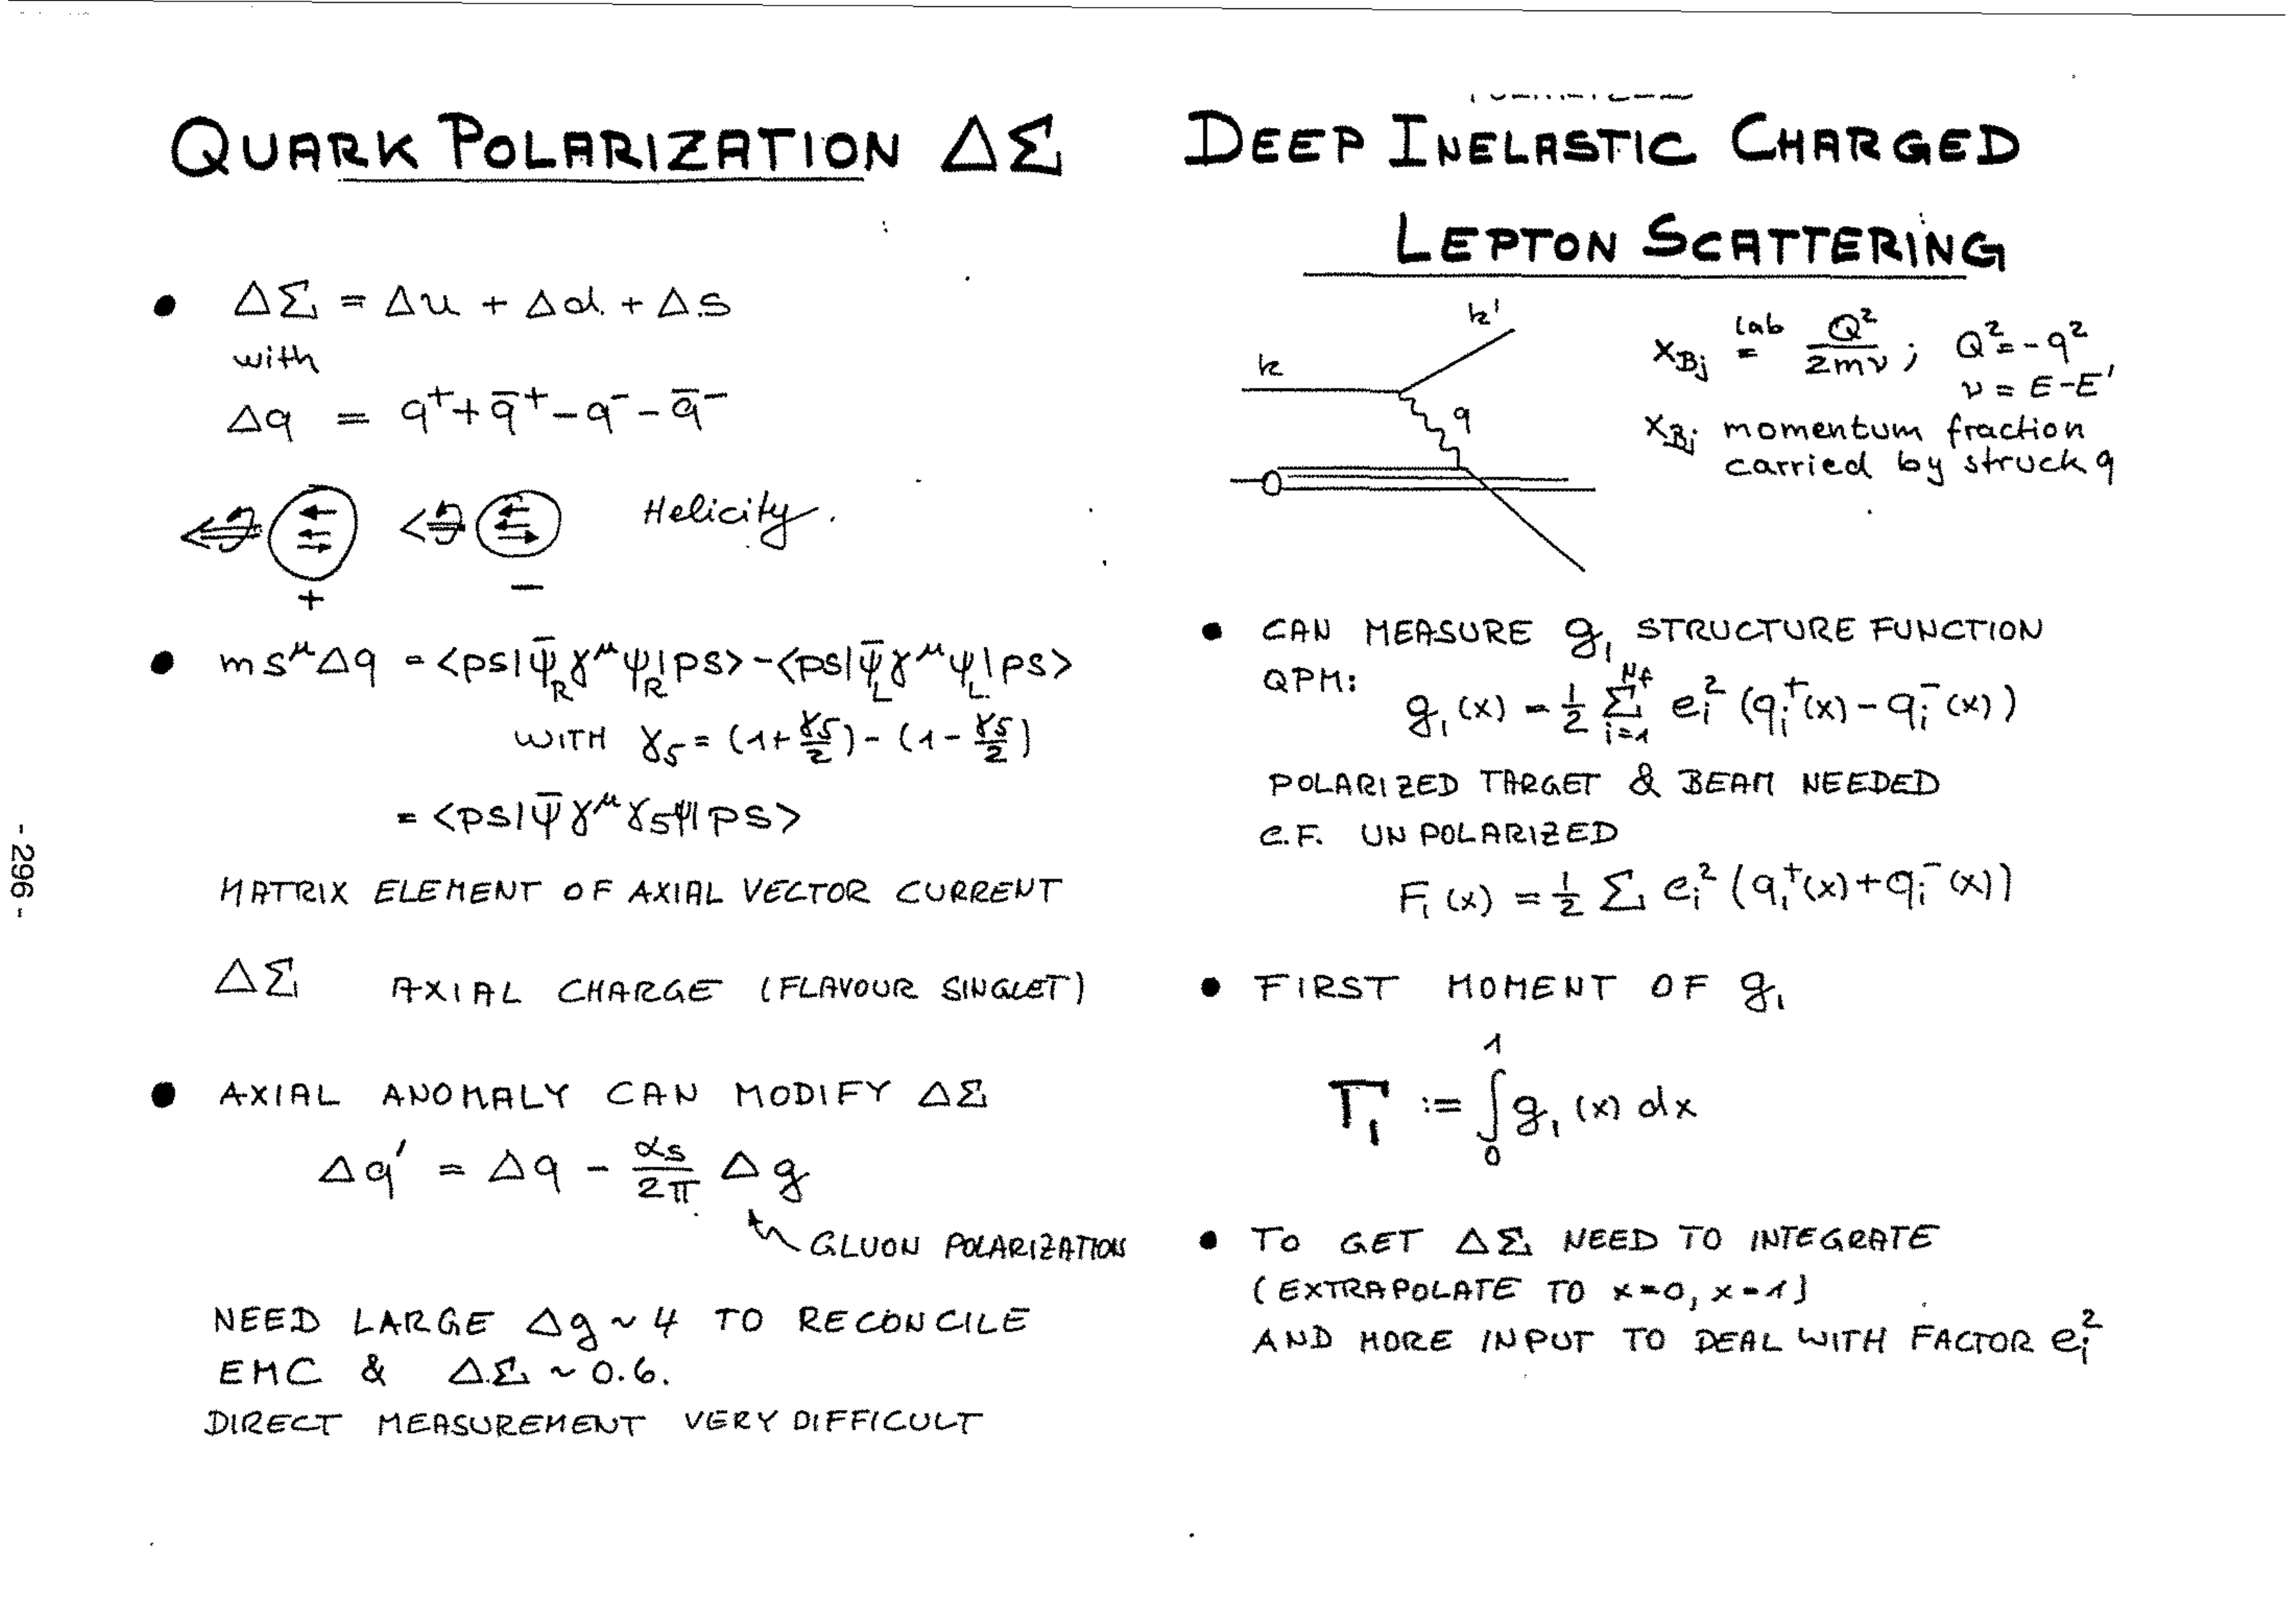 QUARK POLARIZATION ΔΣ
• ΔΣ = Δu + Δd + Δs
with
Δq = q⁺ + q̄⁺ − q⁻ − q̄⁻
Helicity.
+ −
• m s^μ Δq = <ps| ψ̄_R γ^μ ψ_R |ps> − <ps| ψ̄_L γ^μ ψ_L |ps>
WITH γ₅ = (1 + γ₅/2) − (1 − γ₅/2)
= <ps| ψ̄ γ^μ γ₅ ψ |ps>
MATRIX ELEMENT OF AXIAL VECTOR CURRENT
ΔΣ AXIAL CHARGE (FLAVOUR SINGLET)
• AXIAL ANOMALY CAN MODIFY ΔΣ
Δq' = Δq − αs/2π Δg
GLUON POLARIZATION
NEED LARGE Δg ~ 4 TO RECONCILE
EMC & ΔΣ ~ 0.6.
DIRECT MEASUREMENT VERY DIFFICULT
DEEP INELASTIC CHARGED
LEPTON SCATTERING
k'
k
q
x_Bj lab= Q²/2mν ; Q² = −q²
ν = E − E'
x_Bj momentum fraction
carried by struck q
• CAN MEASURE g₁ STRUCTURE FUNCTION
QPM:
g₁(x) = ½ Σ_{i=1}^{Nf} e_i² (q_i⁺(x) − q_i⁻(x))
POLARIZED TARGET & BEAM NEEDED
C.F. UNPOLARIZED
F₁(x) = ½ Σ e_i² (q_i⁺(x) + q_i⁻(x))
• FIRST MOMENT OF g₁
Γ₁ := ∫₀¹ g₁(x) dx
• TO GET ΔΣ NEED TO INTEGRATE
(EXTRAPOLATE TO x=0, x=1)
AND MORE INPUT TO DEAL WITH FACTOR e_i²
- 296 -